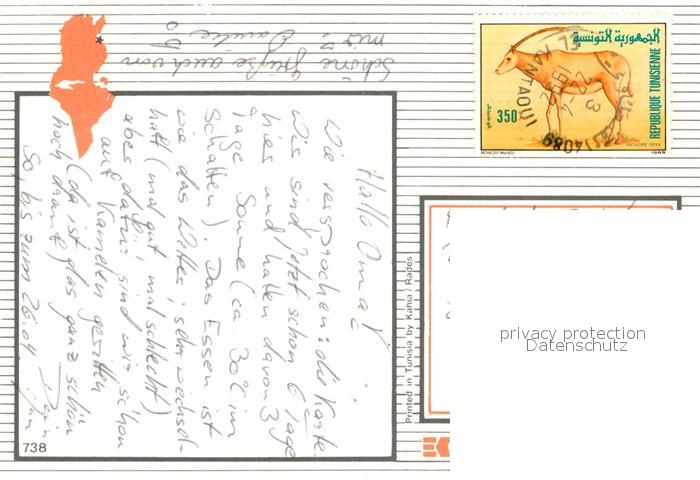 Hallo Oma!
Wie versprochen: die Karte.
Wir sind jetzt schon 6 Tage
hier und hatten davon 3
Tage Sonne (ca. 30°C im
Schatten). Das Essen ist
wie das Wetter; sehr wechsel-
haft (mal gut, mal schlecht)
aber dafür sind wir schon
auf Kamelen geritten
(da ist das ganz schön
hoch drauf)
So, bis zum 26.04. Dein
Schöne Grüße auch von
mir!
738
Printed in Tunisia by Kahia / Rades
الجمهورية التونسية
REPUBLIQUE TUNISIENNE
350
MONCEF MANSI
ANTILOPE ORYX
1989
EL KANTAOUI
4089
1992
privacy protection
Datenschutz